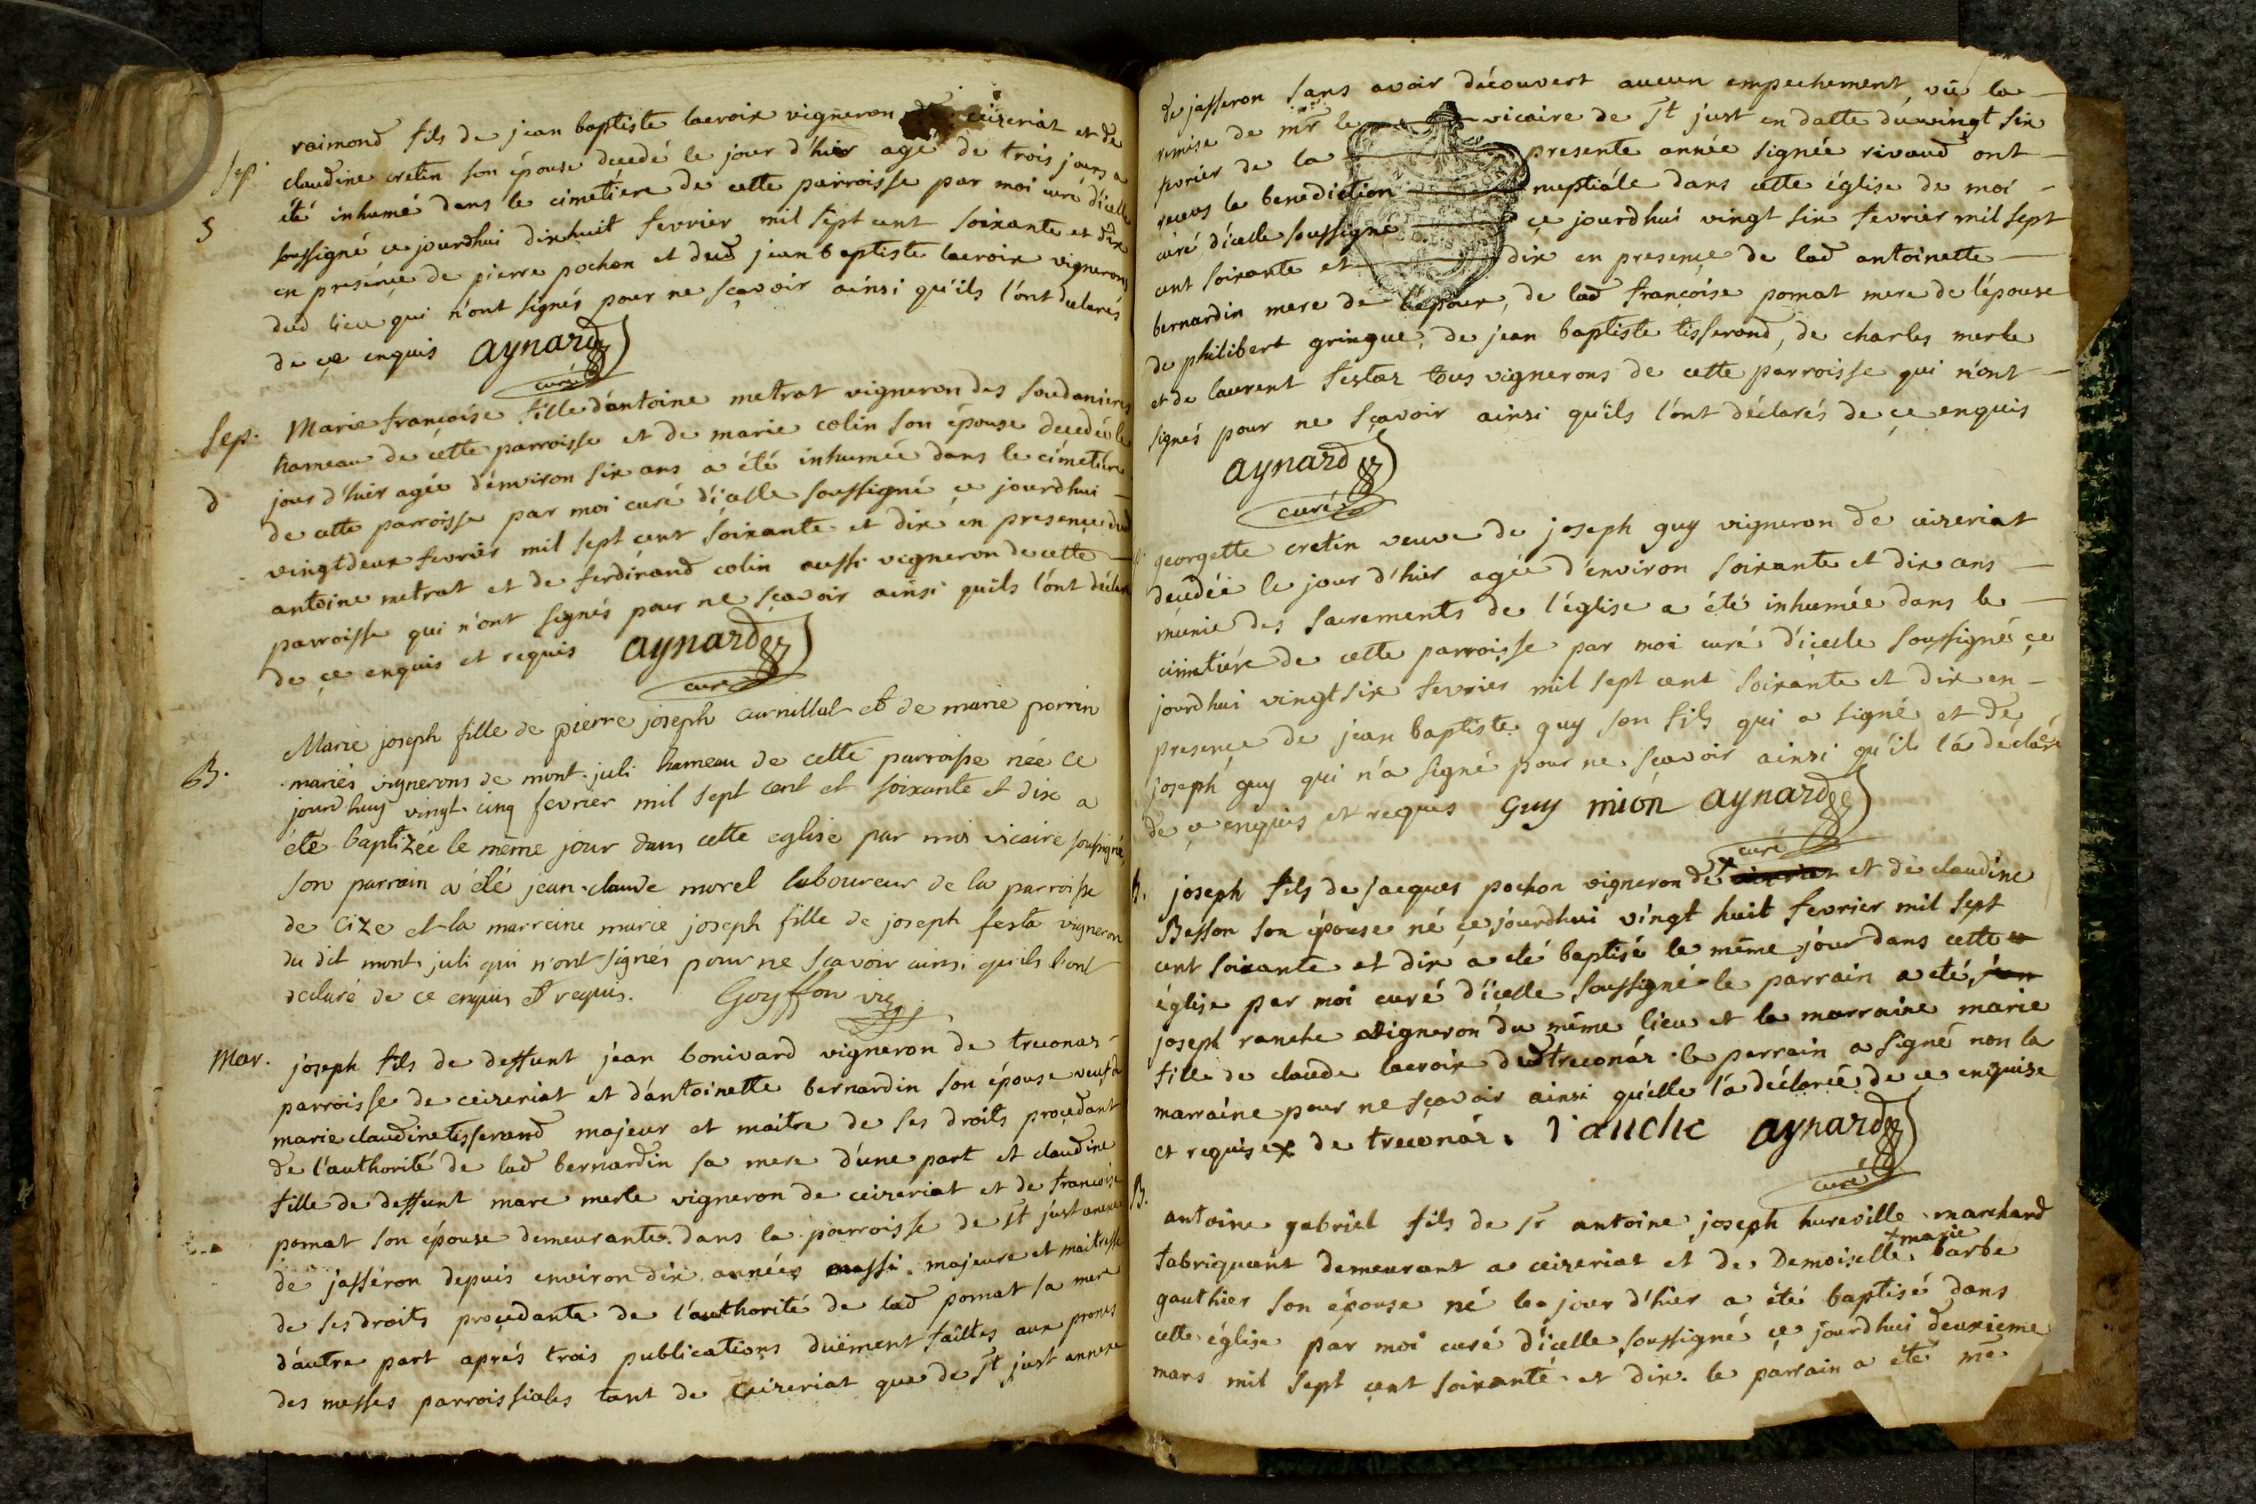 raimond fils de jean baptiste lacroix vigneron de ceizeriat et de
Sep. claudine cretin son épouse decedé le jour d'hier agé de trois jours a
été inhumé dans le cimetiere de cette parroisse par moi curé d'icelle
5 soussigné ce jourdhui dixhuit fevrier mil sept cent soixante et dix
en présençe de pierre pochon et dud jean baptiste lacroix vignerons
dud lieu qui n'ont signés pour ne sçavoir ainsi qu'ils l'ont declarés
de çe enquis aynard
curé
Sep. Marie françoise fille d'antoine metrat vigneron des soudanieres
hameau de cette parroisse et de marie colin son épouse decedée le
d jour d'hier agée d'environ six ans a été inhumée dans le cimetiere
de cette parroisse par moi curé d'icelle soussigné çe jourdhui
vingtdeux fevrier mil sept cent soixante et dix en presençe dud
antoine metrat et de ferdinand colin aussi vigneron de cette
parroisse qui n'ont signés pour ne sçavoir ainsi qu'ils l'ont déclaré
de çe enquis et requis aynard
curé
Marie joseph fille de pierre joseph et de marie perrin
B. mariés vignerons de mont-juli hameau de cette parroisse née ce
jourd'huy vingt-cinq fevrier mil sept cent et soixante et dix a
été baptizée le même jour dans cette eglise par moi vicaire soussigné,
son parrain a été jean-claude morel laboureur de la parroisse
de Cize et la marreine marie joseph fille de joseph festa vigneron
du dit mont-juli qui n'ont signés pour ne sçavoir ainsi qu'ils l'ont
declaré de ce enquis et requis. Goyffon vic
Mar. joseph fils de deffunt jean bonivard vigneron de treconaz
parroisse de ceizeriat et d'antoinette bernardin son épouse veuf de
marie claudine tisserand majeur et maitre de ses droits proçedant
de l'authorité de lad bernardin sa mere d'une part et claudine
fille de deffunt marc merle vigneron de ceizeriat et de françoise
pomat son épouse demeurante dans la parroisse de st just annexe
de jasséron depuis environ dix années aussi majeure et maitresse
de ses droits proçedante de l'authorité de lad pomat sa mere
d'autre part aprés trois publications duëment faittes aux prones
des messes parroissiales tant de Ceizeriat que de st just annexe
de jasseron sans avoir découvert aucun empechement, vû la
remise de mr le vicaire de st just en datte du vingt six
fevrier de la presente année signée rivaud ont
recus la benediction nuptiale dans cette église de moi
curé d'icelle soussigné çe jourdhui vingt six fevrier mil sept
cent soixante et dix en presençe de lad antoinette
bernardin mere de l'époux, de lad françoise pomat mere de l'épouse
de philibert gringue, de jean baptiste tisserand, de charles merle
et de laurent festaz tous vignerons de cette parroisse qui n'ont
signés pour ne sçavoir ainsi qu'ils l'ont déclarés de çe enquis
aynard
curé
georgette cretin veuve de joseph guy vigneron de ceizeriat
decedée le jour d'hier agée d'environ soixante et dix ans
munie des sacrements de l'église a été inhumée dans le
cimetiére de cette parroisse par moi curé d'icelle soussigné çe
jourdhui vingt six fevrier mil sept cent soixante et dix en
presençe de jean baptiste guy son fils qui a signé et de
joseph guy qui n'a signé pour ne sçavoir ainsi qu'il l'a déclaré
de çe enquis et requis guy mion aynard
curé
B. joseph fils de jacques pochon vigneron de x ceizeriat et de claudine
Besson son épouse né çe jourdhui vingt huit fevrier mil sept
cent soixante et dix a été baptisé le même jour dans cette
église par moi curé d'icelle soussigné le parrain a eté jean
joseph ranche vigneron du même lieu et la marraine marie
fille de claude lacroix dud treconáz le parrain a signé non la
marraine pour ne sçavoir ainsi qu'elle l'a déclarée de ce enquise
et requise x de treconáz. ranche aynard
curé
B. antoine gabriel fils de sr antoine joseph hureville marchand
x marie
fabriquant demeurant a ceizeriat et de Demoiselle x barbe
gauthier son épouse né le jour d'hier a été baptisé dans
cette église par moi curé d'icelle soussigné çe jourdhui deuxieme
mars mil sept cent soixante et dix. le parrain a été me